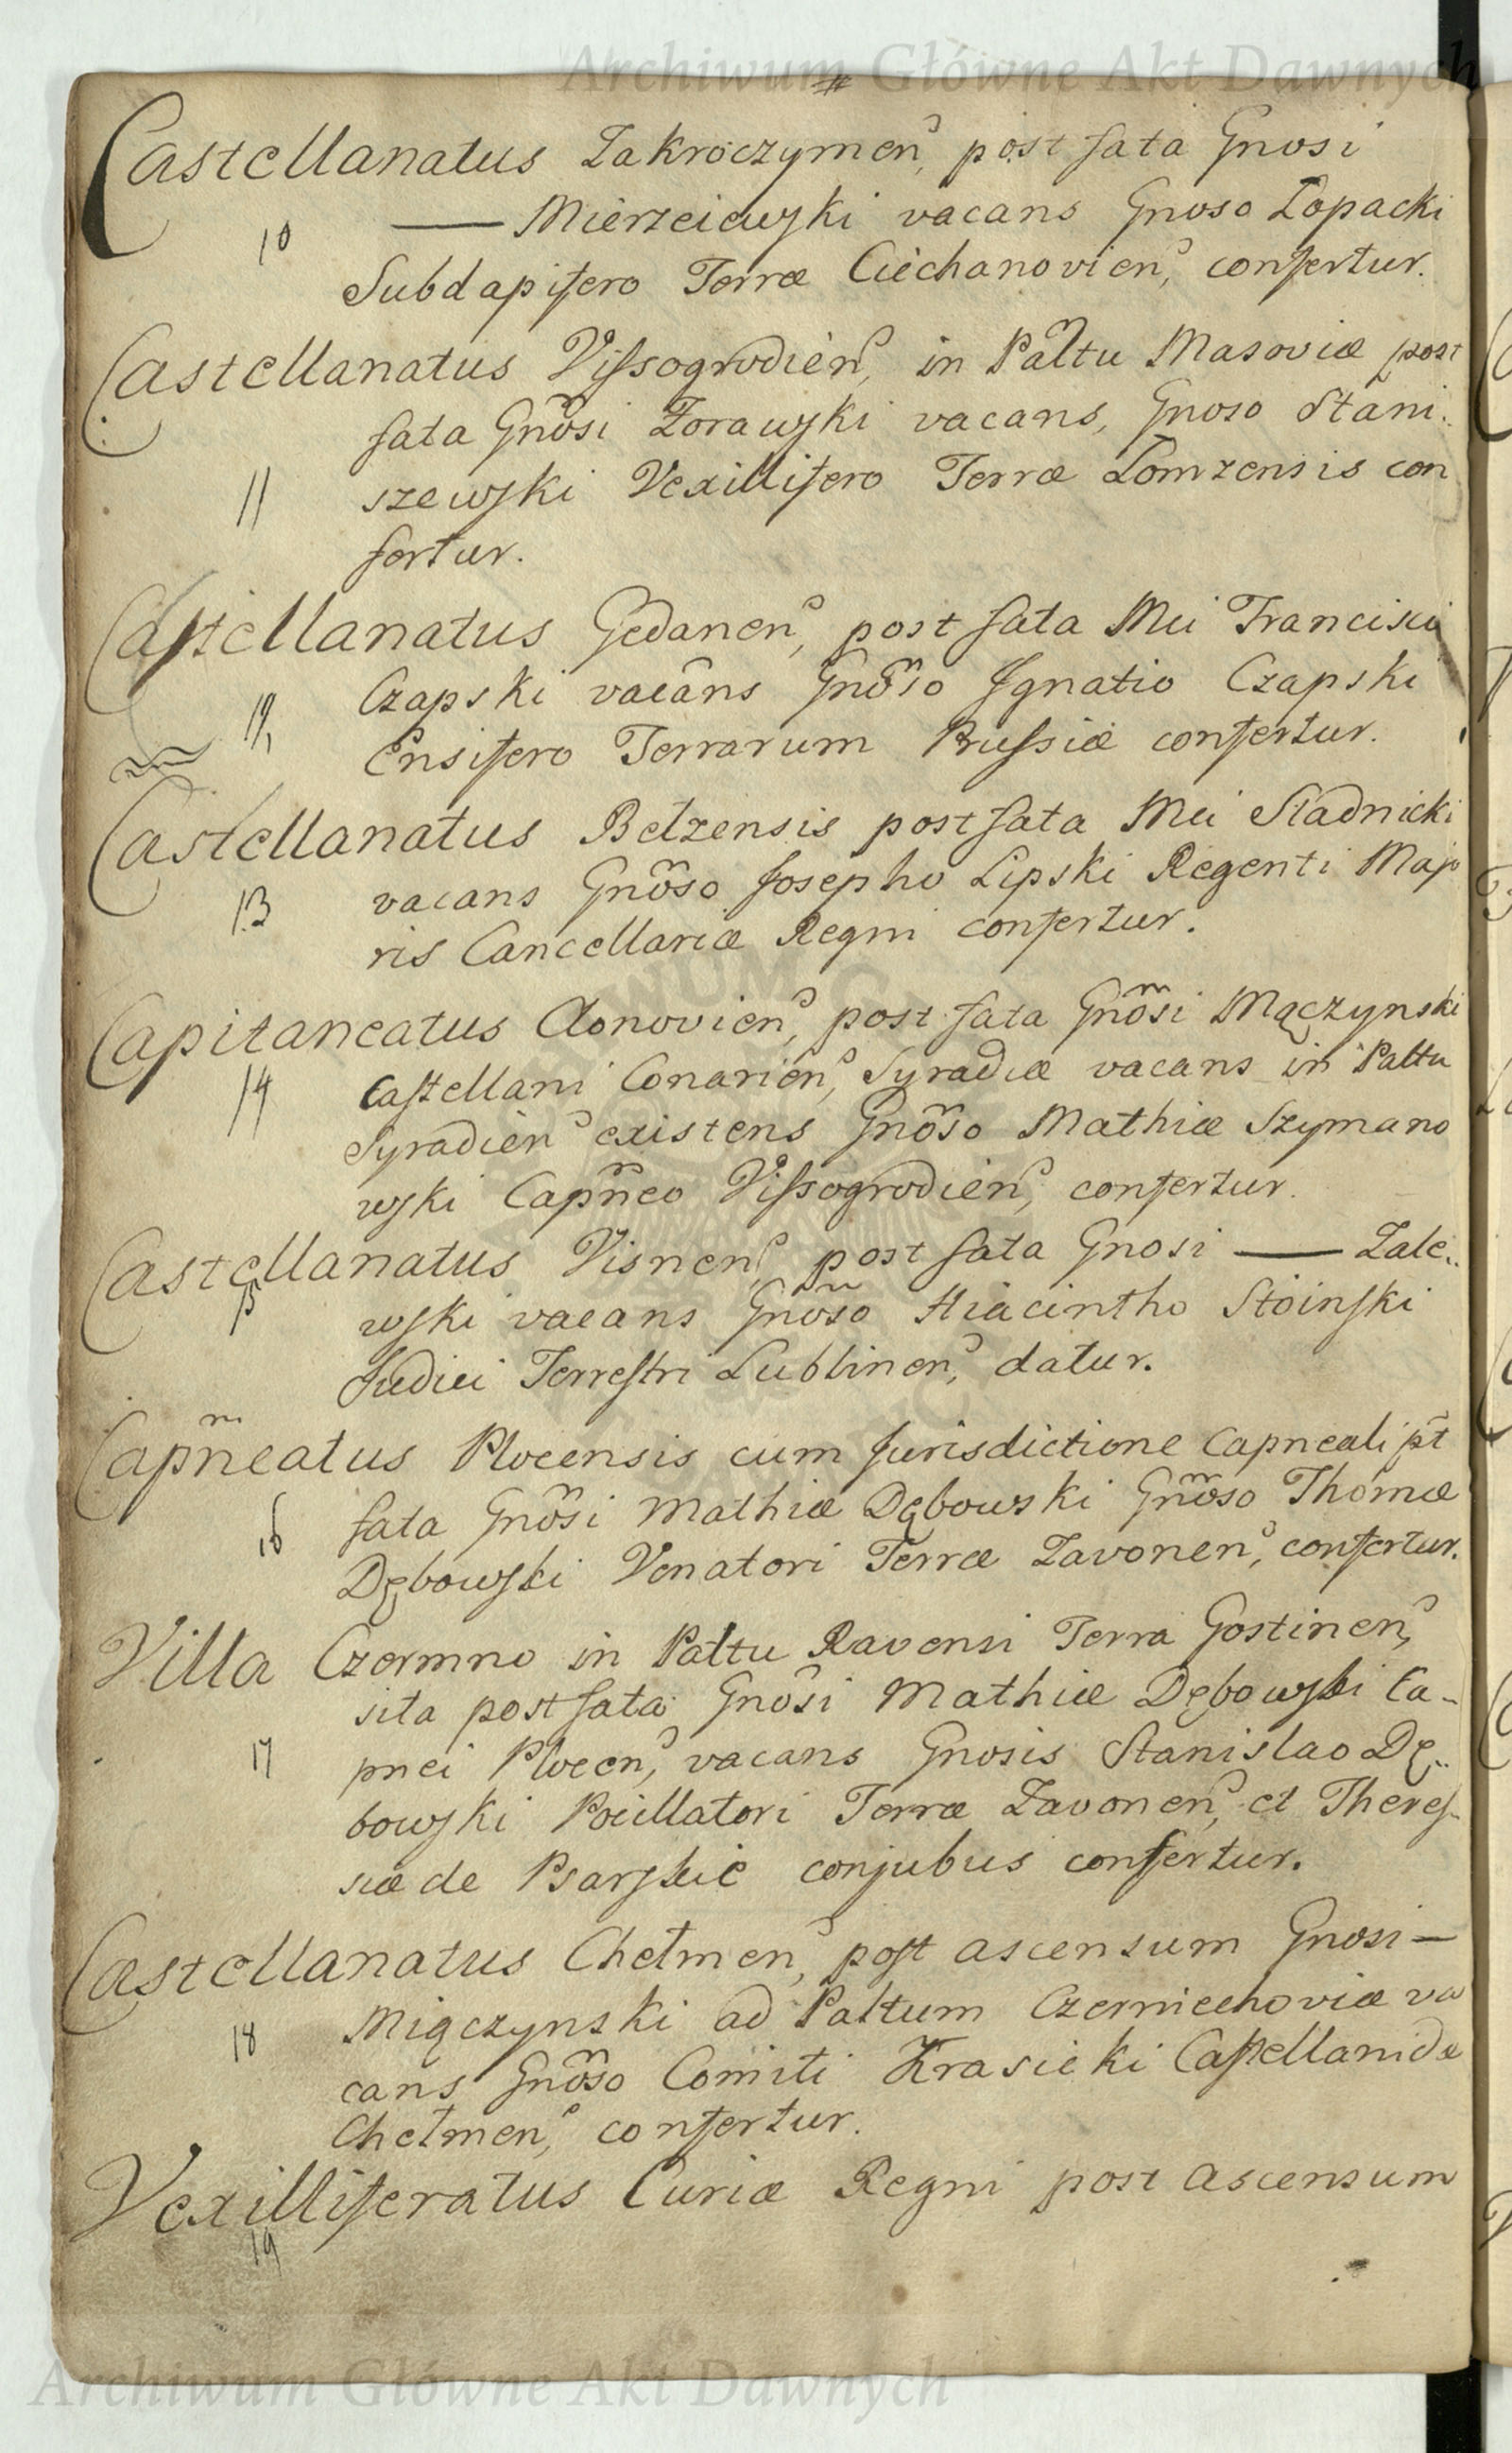 Archiwum Główne Akt Dawnych
#
Castellanatus Zakroczymen, post fata Gnosi
10 — Mierzeiewski vacans Gnoso Łopacki
Subdapifero Terræ Ciechanovien, confertur.
Castellanatus Vissogrodien, in Pałtu Masoviæ post
fata Gnõsi Zorawski vacans, Gnoso Stani:
11 szewski Vexillifero Terræ Łomzensis con
fertur.
Castellanatus Gedanen, post fata Mci Francisci
Czapski vacans Gnõso Ignatio Czapski
12 Ensifero Terrarum Prussiæ confertur.
Castellanatus Bełzensis post fata Mci Stadnicki
13 vacans Gnõso Josepho Lipski Regenti Majo
ris Cancellariæ Regni confertur.
Capitaneatus Klonovien, post fata Gnõsi Mączynski
14 Castellani Conarien, Syradiæ vacans in Pałtu
Syradien existens Gnõso Mathiæ Szymano
wski Capñeo Vissogrodien, confertur.
Castellanatus Visnen, post fata Gnosi — Zale:
15 wski vacans Gnõso Hiacintho Stoinski
Judici Terrestri Lublinen, datur.
Capñeatus Plocensis cum Jurisdictione Capneali pt
16 fata Gnõsi Mathiæ Dębowski Gnõso Thomæ
Dębowski Venatori Terræ Zavonen, confertur.
Villa Czermno in Pałtu Ravensi Terra Gostinen,
sita post fata Gnosi Mathiæ Dębowski Ca-
17 pnei Plocen, vacans Gnosis Stanislao Dę:
bowski Pocillatori Terræ Zavonen, et Theres-
siæ de Psarskie conjubus confertur.
Castellanatus Chełmen, post ascensum Gnosi —
18 Miączynski ad Pałtum Czerniechoviæ va
cans Gnõso Comiti Krasicki Castellanidæ
Chełmen, confertur.
Vexilliferatus Curiæ Regni post ascensum
19
Archiwum Główne Akt Dawnych